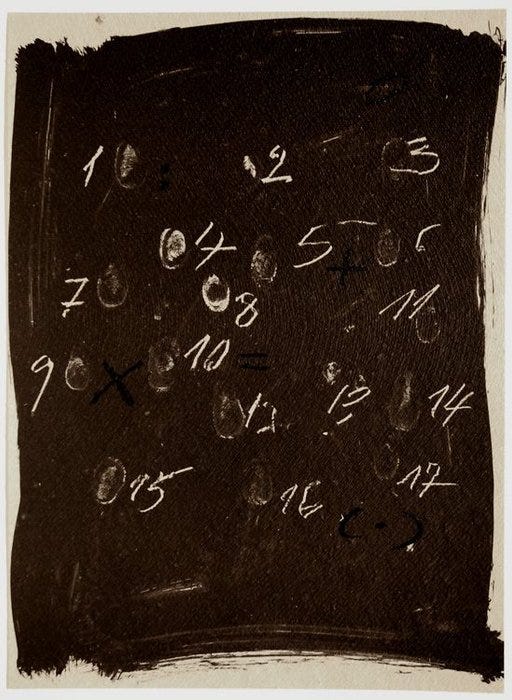 1 : 2 3
4 5 + 6
7 8 11
9 × 10 =
14
15 16 17
(·)